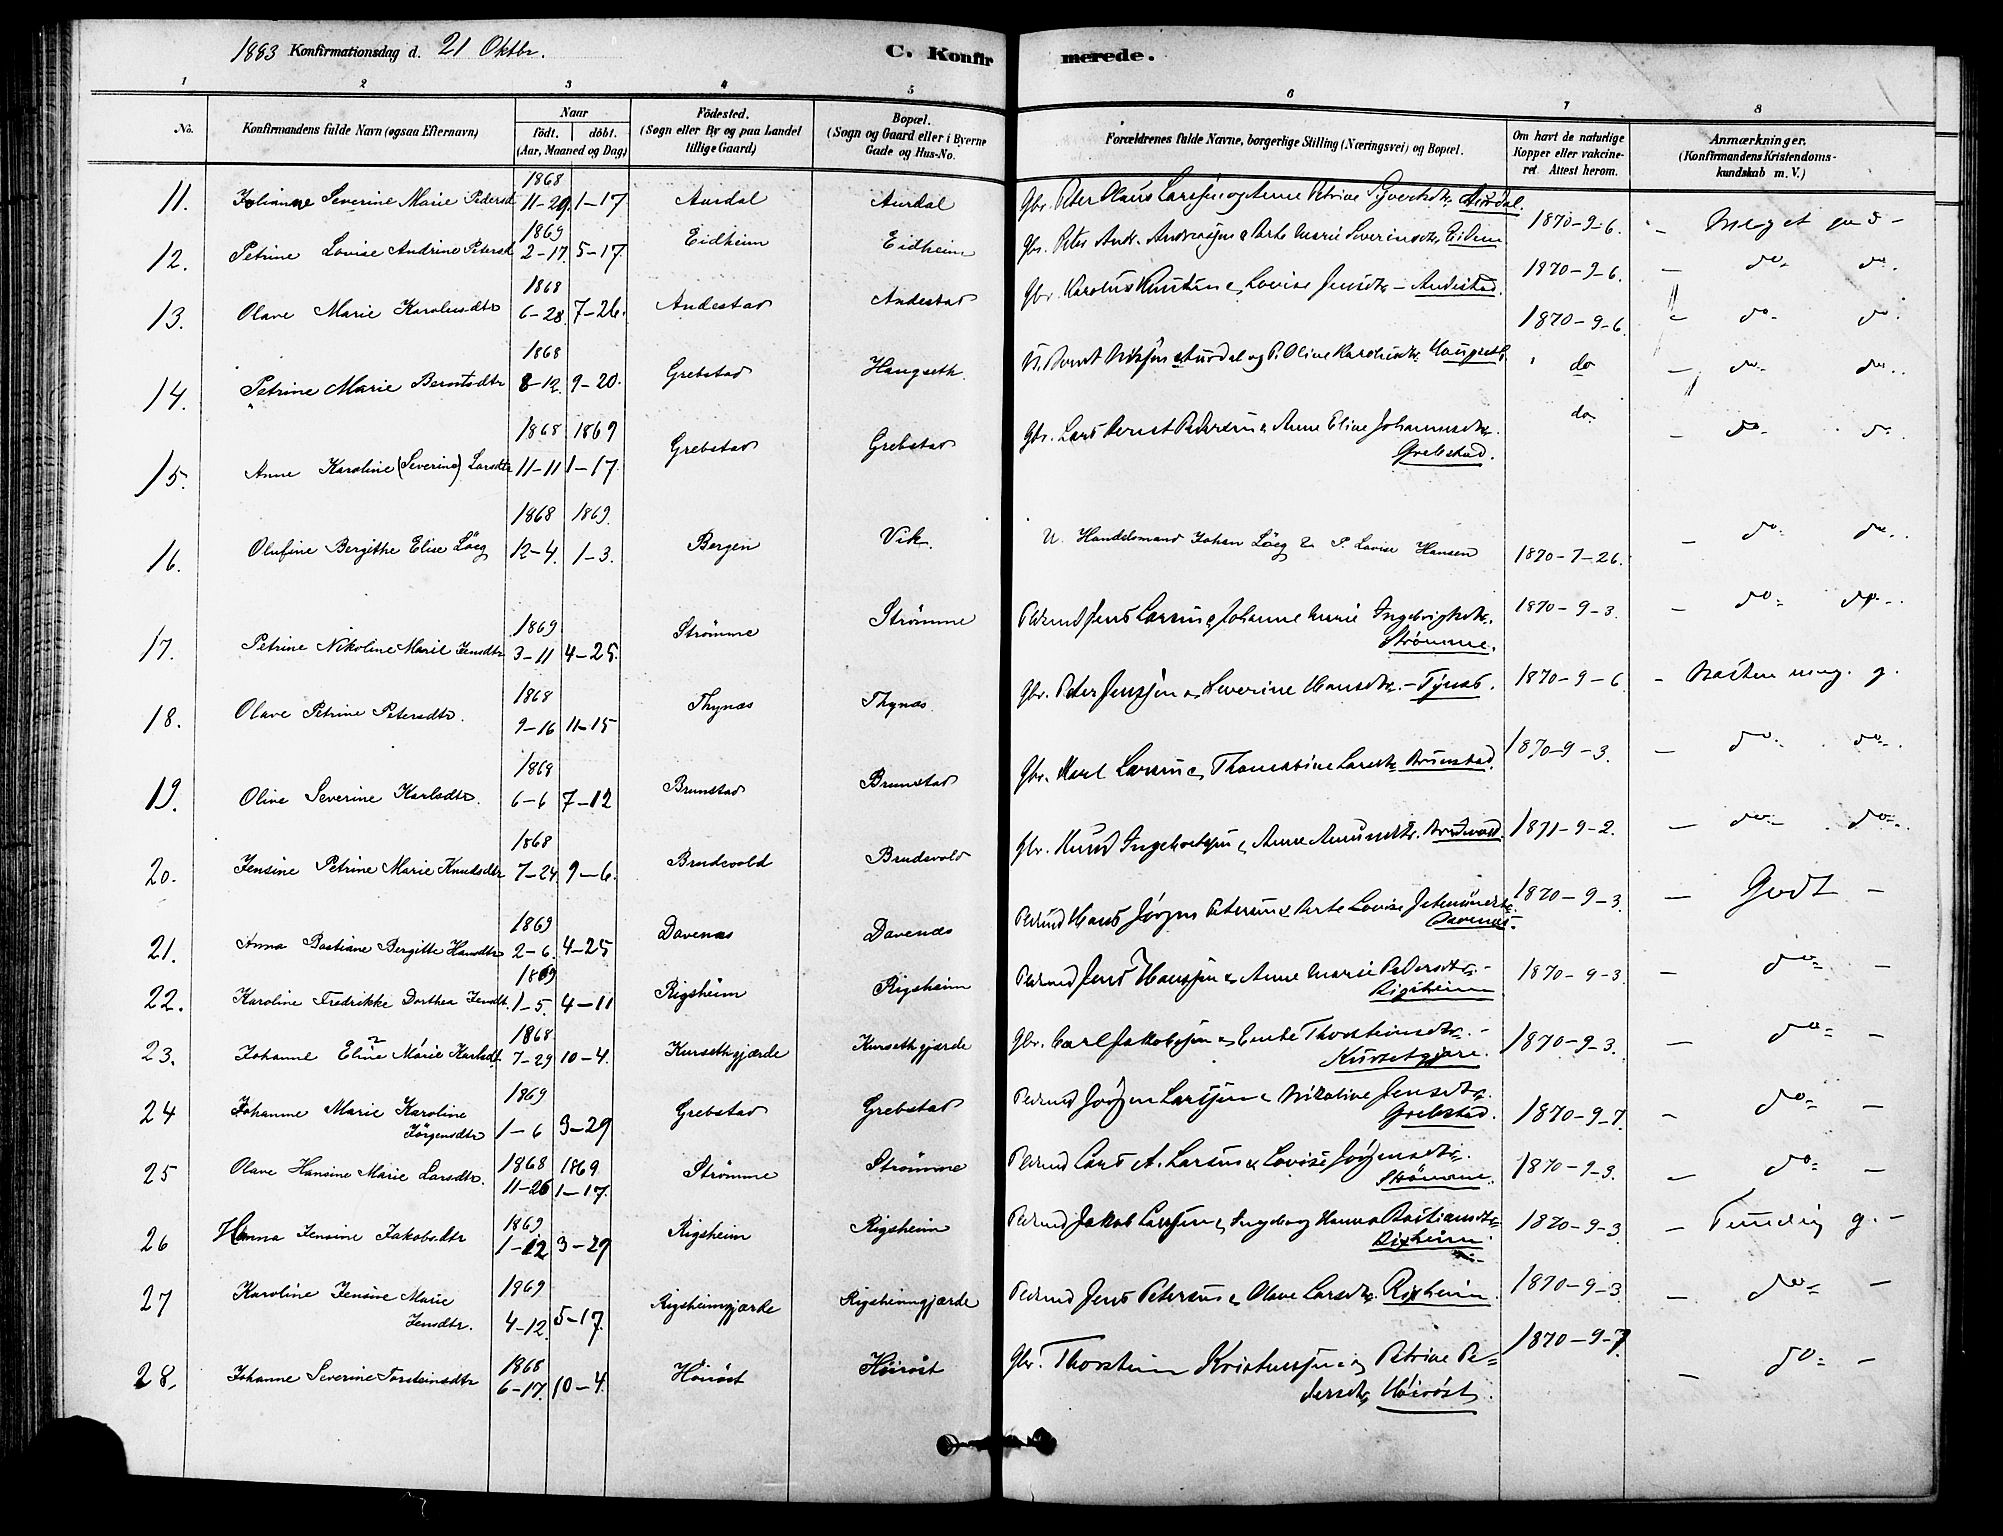 1883 Konfirmationsdag d. 21 Oktbr. C. Konfirmerede.
1 2 3 4 5 6 7 8
No. Konfirmandens fulde Navn (ogsaa Efternavn) Naar födt. döbt. (Aar, Maaned og Dag) Födested. (Sogn eller By og paa Landet tillige Gaard) Bopæl. (Sogn og Gaard eller i Byerne Gade og Hus-No. Forældrenes fulde Navne, borgerlige Stilling (Næringsvei) og Bopæl. Om havt de naturlige Kopper eller vakcineret. Attest herom. Anmærkninger. (Konfirmandens Kristendomskundskab m. V.)
1868
11. Severine Marie Pedersd 11-29. 1-17 Aurdal Aurdal Gbr. Peter Olaus Larssen og Anne Petrine Aurdal. 1870-9-6. - Meget godt -
1869
12. Petrine Lovise Andrine Petersd 2-17 5-17 Eidheim Eidheim Gbr. Peter Andr. Marie Severinsdtr. 1870-9-6. - do do.
1868
13. Olave Marie Karolusdtr 6-28. 7-26. Andestad Andestad Gbr. Karolus Knutsen & Lovise Jensdtr - Andestad. 1870-9-6. - do do
1868
14. Petrine Marie Berntsdtr 8-12. 9-20. Grebstad Haugseth. Aurdal og P. Oline do - do do.
1868 1869
15. Anne Karoline (Severine) Larsdtr 11-11 1-17. Grebstad Grebstad Gbr. Lars Bernt Pedersen & Anne Eline Johannesdtr. Grebstad. do - do do
1868 1869.
16. Olufine Bergithe Elise Löeg 12-4. 1-3. Bergen Vik. U. Handelsmand Johan Löeg & P. Lovise Hansen 1870-7-26. - do do.
1869
17. Petrine Nikoline Marie Jensdtr 3-11 4-25. Strömme Strömme Jens Larsen & Johanne Marie Strømme. 1870-9-3. - do do
1868
18. Olave Petrine Petersdtr. 9-16 11-15 Thynæs Thynæs Gbr. Peter Jenssen & Severine Hansdtr. - Tynæs. 1870-9-6. - Næsten meg. g.
1868
19. Oline Severine Karlsdtr. 6-6 7-12 Brunstad Brunstad Gbr. Karl Larsen & Larsdtr Brunstad. 1870-9-3. - do do.
1868
20. Jensine Petrine Marie Knudsdtr 7-24 9-6. Brudevold Brudevold Gbr. Knud & Anne 1871-9-2. - do do.
1869
21. Anna Bastiane Bergitte Hansdtr 2-6. 4-25 Davenæs Davenæs Hans Jørgen Petersen & Lovise Davenæs. 1870-9-3. - Godt -
1869
22. Karoline Fredrikke Dorthea Jensdt. 1-5. 4-11 Rigsheim Rigsheim Jens Hanssen & Anne Marie Pedersdtr. - Rigsheim 1870-9-3. - do -
1868
23. Johanne Eline Marie Karlsdt. 7-29 10-4. Kursethgjærde Kursethgjærde Gbr. Carl Jakobsen & Thorsteinsdtr. - Kursetgjære. 1870-9-3. - do -
1869
24 Johanne Marie Karoline Jörgensdtr 1-6 3-29 Grebstad Grebstad Jörgen Larssen & Nikoline Jensdtr. Grebstad. 1870-9-7. - do -
1868 1869
25 Olave Hansine Marie Larsdtr. 11-26 1-17. Strömme Strömme Lars A. Larsen & Lovise Jörgensdtr. Strömme. 1870-9-3. - do -
1869
26 Hanna Jensine Jakobsdtr 1-12 3-29 Rigsheim Rigsheim Jakob Larssen & Ingeborg Hanna Bastiansdtr 1870-9-3. - Temelig g. -
1869
27 Karoline Jensine Marie Jensdtr. 4-12. 5-17. Rigsheimgjærde Rigsheimgjærde Jens Petersen & Olave Larsdtr. Rixheim. 1870-9-3. - do -
1868
28. Johanne Severine Torsteinsdtr 6-17. 10-4. Höiröst Höiröst Gbr. Thorstein & Petrine Pedersdtr, Höiröst. 1870-9-7. - do -